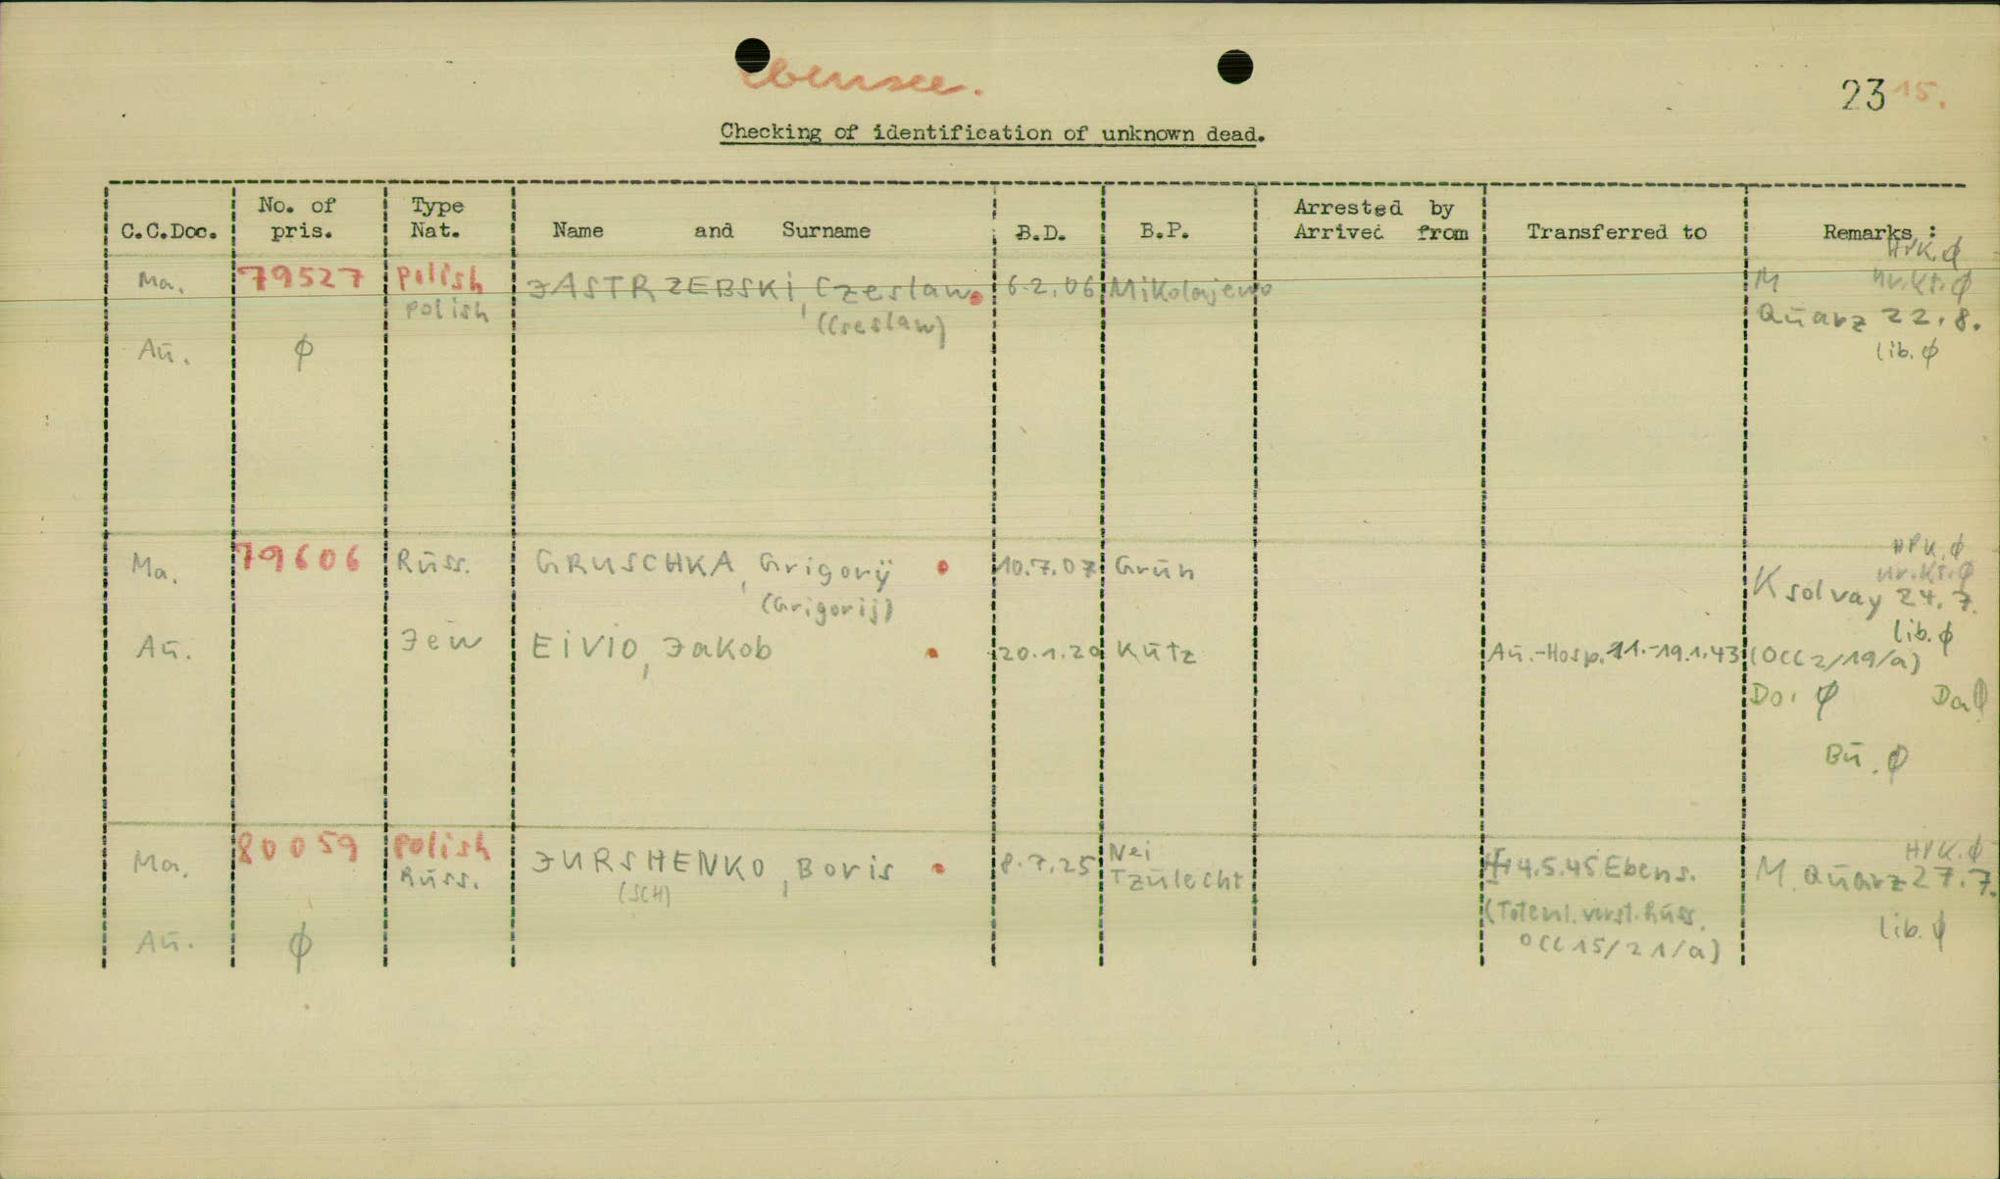 Ebensee.
23 15.
Checking of identification of unknown dead.
C.C.Doc. No. of pris. Type Nat. Name and Surname B.D. B.P. Arrested by Arrived from Transferred to Remarks :
HPK. ∅
Ma. 79527 Polish JASTRZEBSKI, Czeslaw 6.2.06 Mikolajewo M Nr.Kt. ∅
polish (Creslaw) Quarz 22.8.
Aū. ∅ lib. ∅
HPK. ∅
Ma. 79606 Rūss. GRUSCHKA, Grigorÿ 10.7.07 Grūn Nr.Kt. ∅
(Grigorij) K Solvay 24.7.
lib. ∅
Aū. Jew EIVIO, Jakob 20.1.20 Kūtz Aū.-Hosp. 11.-19.1.43 (OCC 2/19/a)
Do. ∅ Da ∅
Bū. ∅
HPK. ∅
Ma. 80059 polish JURSHENKO, Boris 8.7.25 Nei Tzūlecht 4.5.45 Ebens. M. Qūarz 27.7.
Rūss. (SCH) (Totenl. verst. Rūss.
Aū. ∅ OCC 15/21/a) lib. ∅